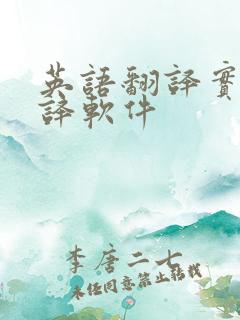 英語翻譯實
譯軟件
李唐二七
未經同意禁止轉載